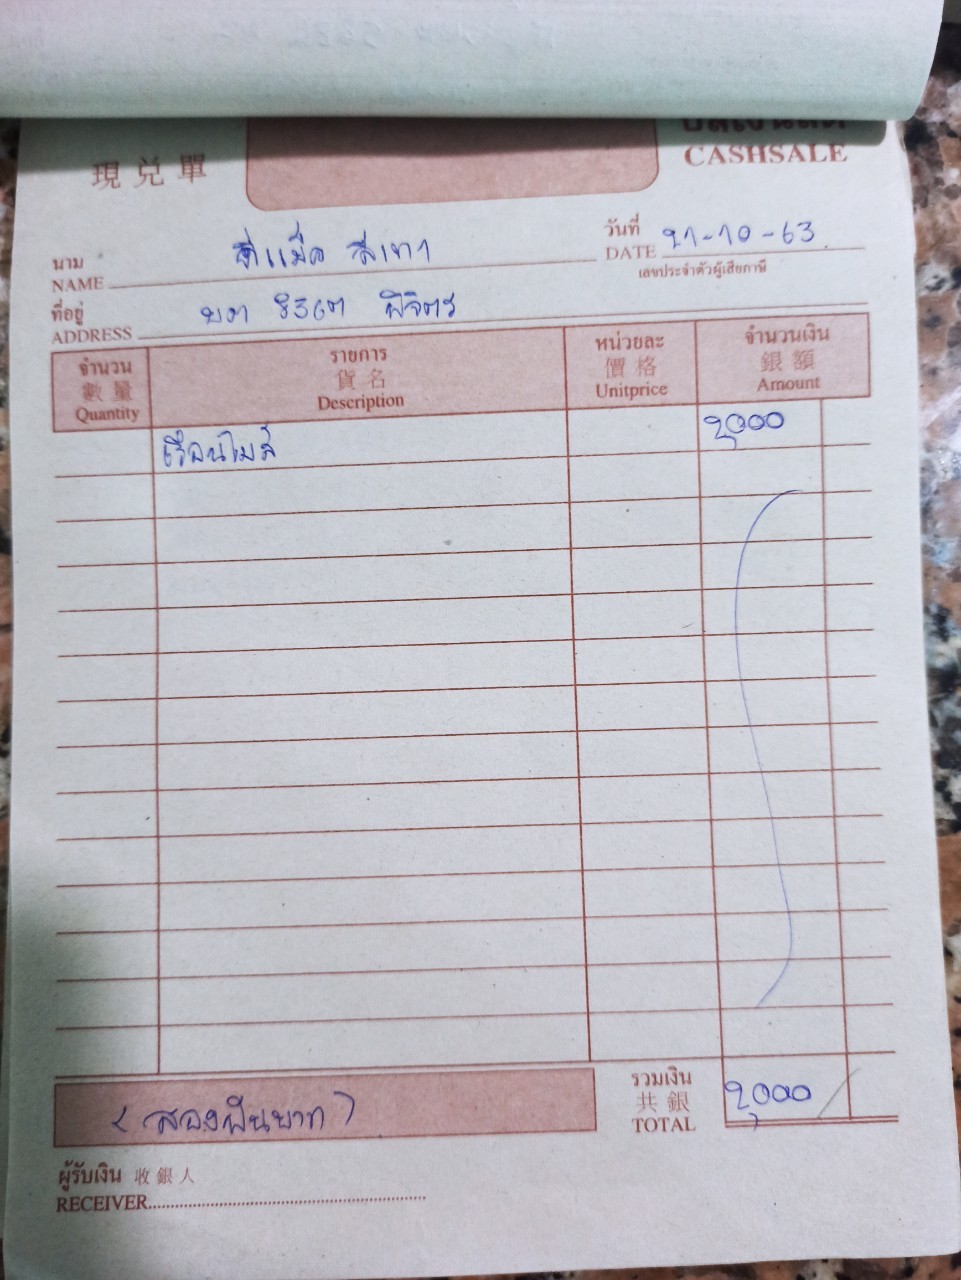 บิลเงินสด
現兑單 CASHSALE
นาม
NAME พี่แม็ค สีเทา
วันที่
DATE 21-10-63
เลขประจำตัวผู้เสียภาษี
ที่อยู่
ADDRESS บต 8367 พิจิตร
จำนวน รายการ หน่วยละ จำนวนเงิน
數量 貨名 價格 銀額
Quantity Description Unitprice Amount
เรือนไมล์ 2,000
(สองพันบาท)
รวมเงิน
共銀
TOTAL 2,000
ผู้รับเงิน 收銀人
RECEIVER